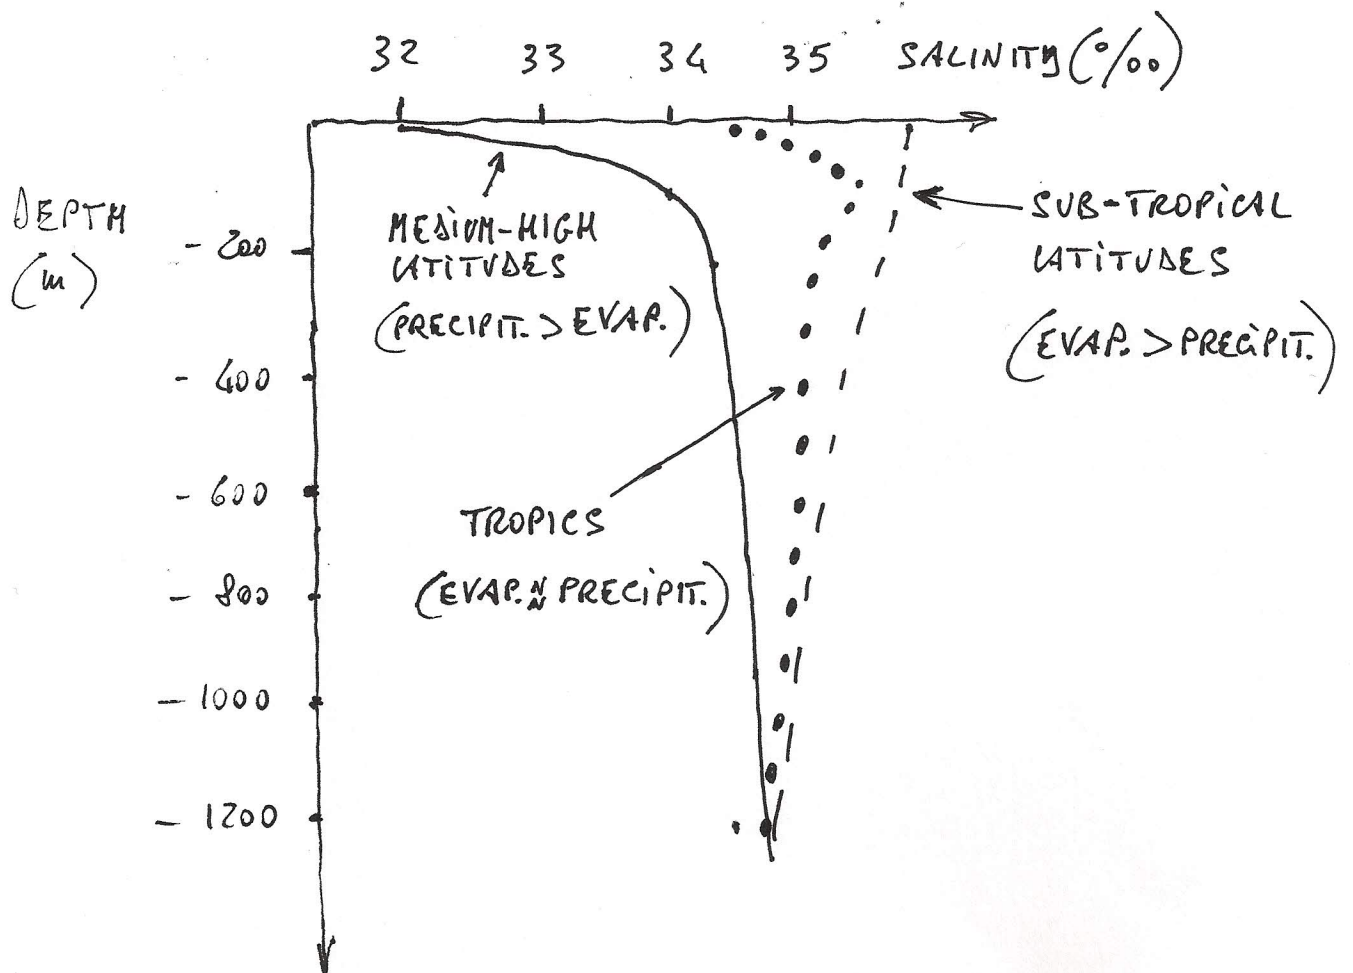 32 33 34 35 SALINITY (‰)
DEPTH
(m)
- 200
- 400
- 600
- 800
- 1000
- 1200
MEDIUM-HIGH
LATITUDES
(PRECIPIT. > EVAP.)
SUB-TROPICAL
LATITUDES
(EVAP. > PRECIPIT.)
TROPICS
(EVAP. ≈ PRECIPIT.)